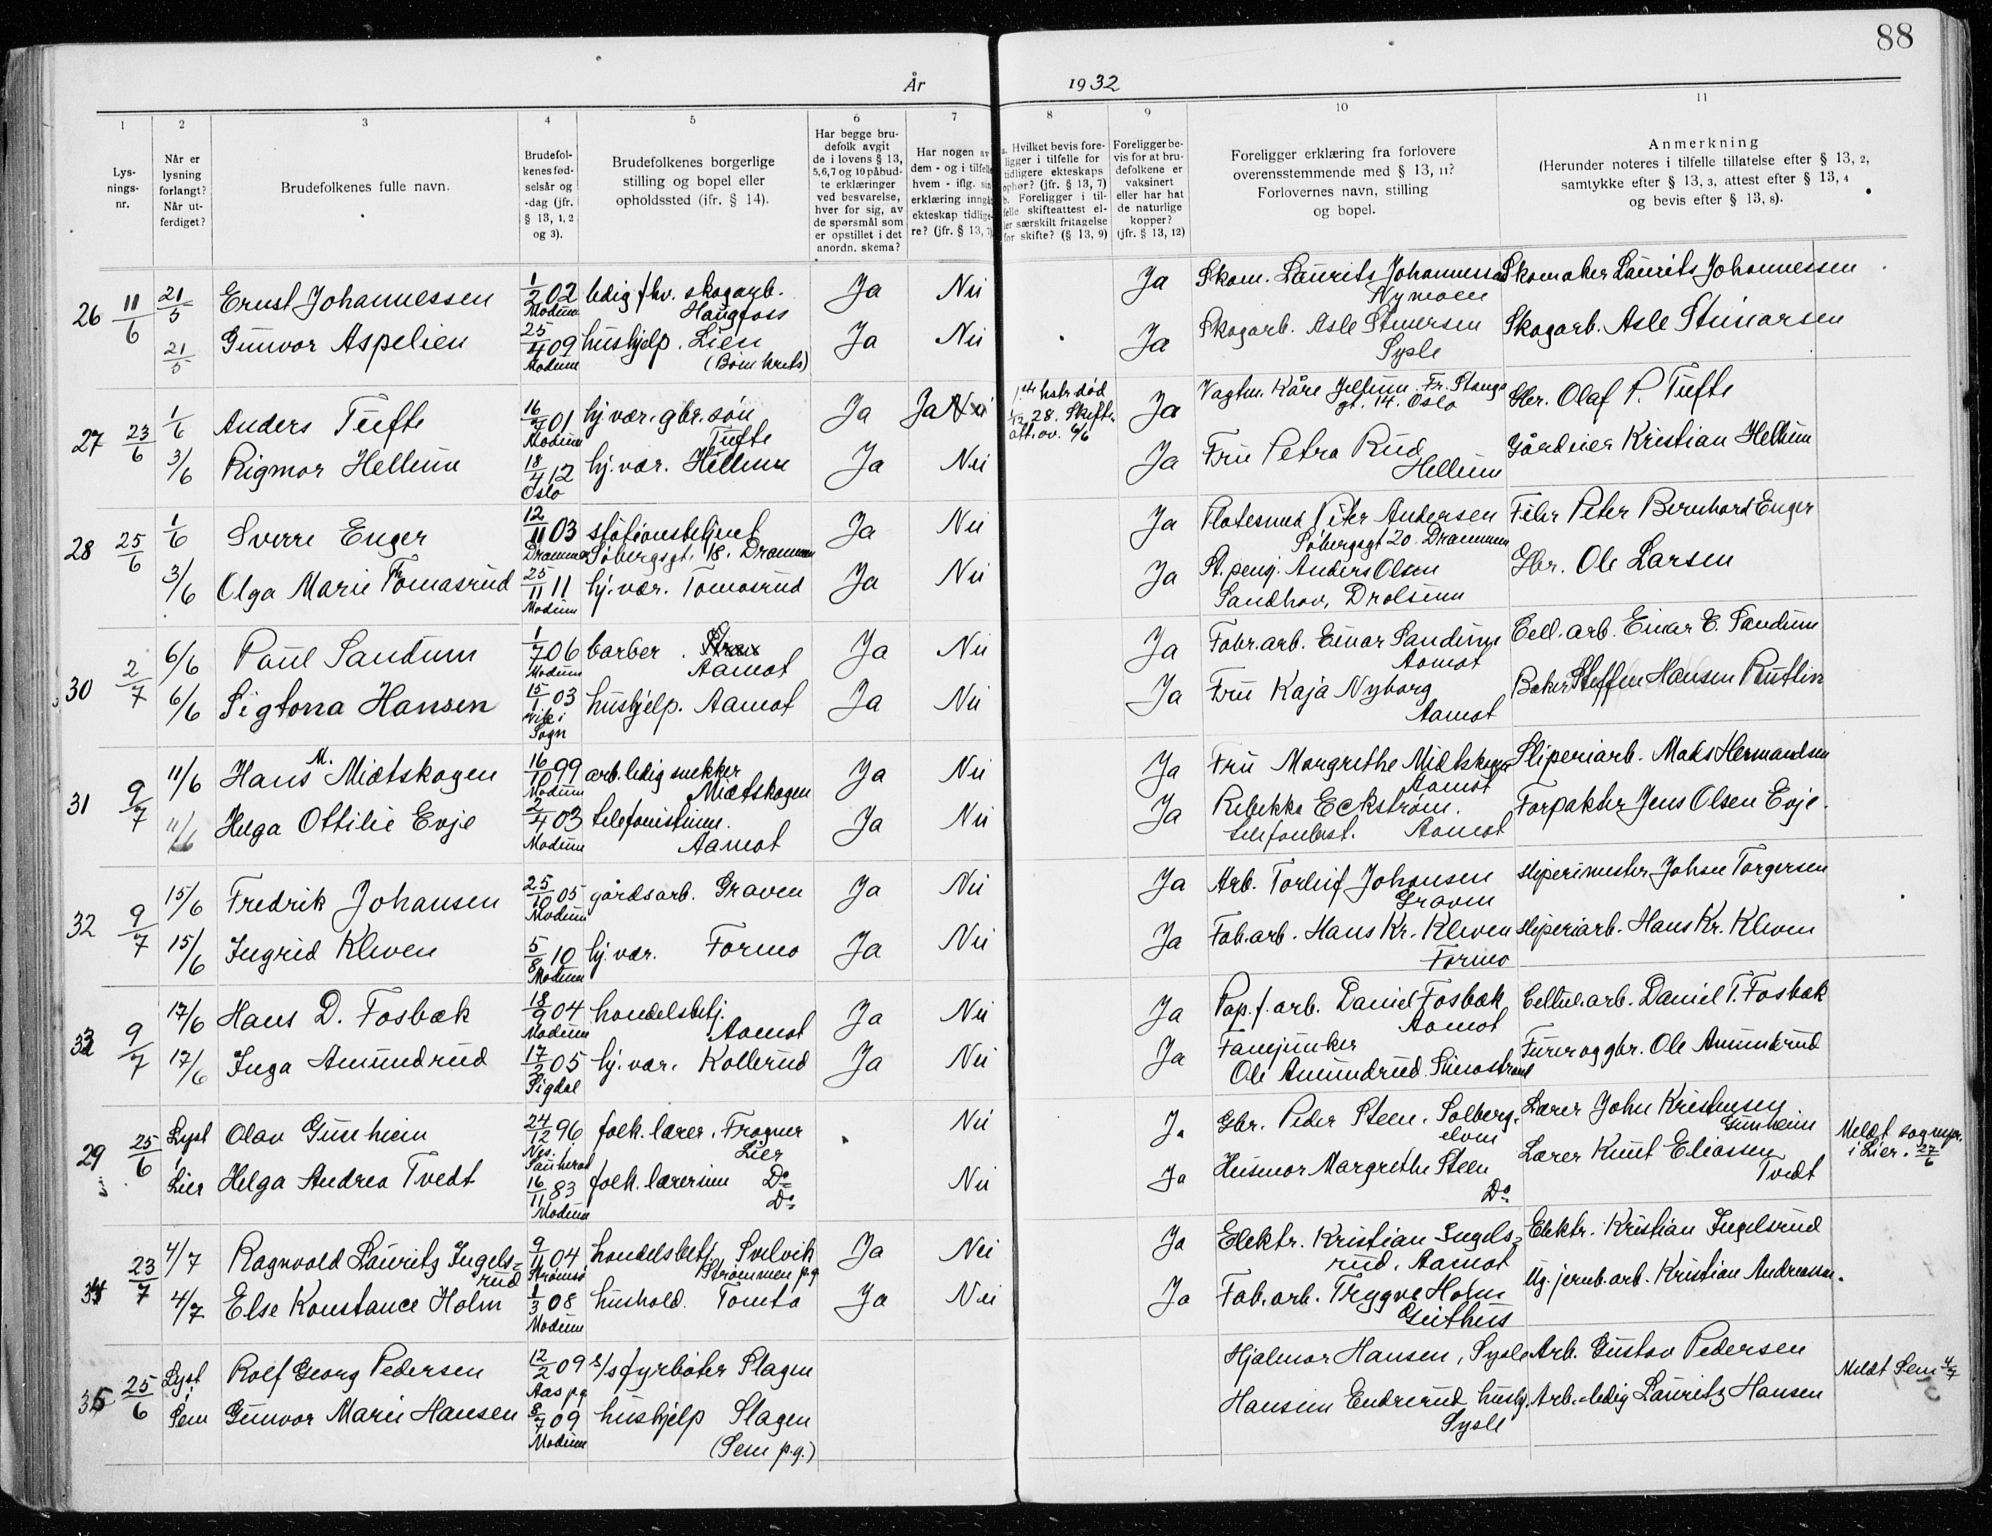 88
År 1932
1 2 3 4 5 6 7 8 9 10 11
Lys-
nings-
nr.
Når er
lysning
forlangt?
Når ut-
ferdiget?
Brudefolkenes fulle navn.
Brudefol-
kenes fød-
selsår og
-dag (jfr.
§ 13, 1, 2
og 3).
Brudefolkenes borgerlige
stilling og bopel eller
opholdssted (ifr. § 14).
Har begge bru-
defolk avgit
de i lovens § 13,
5,6,7 og 10 påbud-
te erklæringer
ved besvarelse,
hver for sig, av
de spørsmål som
er opstillet i det
anordn. skema?
Har nogen av
dem - og i tilfelle
hvem - iflg. sin
erklæring inngåt
ekteskap tidlige-
re? (jfr. § 13, 7)
a. Hvilket bevis fore-
ligger i tilfelle for
tidligere ekteskaps
ophør? (jfr. § 13, 7)
b. Foreligger i til-
felle skifteattest el-
ler særskilt fritagelse
for skifte? (§ 13, 9)
Foreligger be-
vis for at bru-
defolkene er
vaksinert
eller har hat
de naturlige
kopper?
(jfr. § 13, 12)
Foreligger erklæring fra forlovere
overensstemmende med § 13, 11?
Forlovernes navn, stilling
og bopel.
Anmerkning
(Herunder noteres i tilfelle tillatelse efter § 13, 2,
samtykke efter § 13, 3, attest efter § 13, 4
og bevis efter § 13, 8).
26 11/6 21/5 Ernst Johannessen 1/2 02 Modum ledig fhv. skogarb. Haugfoss Ja Nei Ja Skom. Laurits Johannessen Nymoen Skomaker Laurits Johannessen
21/5 Gunvor Aspelien 25/4 09 Modum hushjelp. Lien (Bøm krets) Ja Nei Ja Skogarb. Asle Steinersen Sysle Skogarb. Asle Steinarsen
27 23/6 1/6 Anders Tufte 16/7 01 Modum hj.vær. gbr.søn Tufte Ja Ja Nei hstr død 28. Skifte att. ov. 6/6 Ja Vagtm. Kåre Jellum Fr. Stangs gt. 14. Oslo Gbr. Olaf P. Tufte
3/6 Rigmor Hellum 18/4 12 Oslo hj.vær. Hellum Ja Nei Ja Fru Petra Rud Hellum Gårdeier Kristian Hellum
28 25/6 1/6 Sverre Enger 12/11 03 Drammen stationsbetjent Søbergsgt. 18. Drammen Ja Nei Ja Platesmed Peter Andersen Søbergsgt 20. Drammen Feler Peter Bernhard Enger
3/6 Olga Marie Thomasrud 25/11 11 Modum hj.vær. Tomasrud Ja Nei Ja St.peng. Anders Olsen Sandhov, Drolsum Gbr. Ole Larsen
30 2/7 6/6 Paul Sandum 1/7 06 Modum barber. Aamot Ja Nei Ja Fabr.arb. Einar Sandum Aamot Cell.arb. Einar E. Sandum
6/6 Sigtona Hansen 15/1 03 Vik i Sogn hushjelp. Aamot Ja Nei Ja Fru Kaja Nyborg Aamot Baker Steffen Hansen Ruttin
31 9/7 11/6 Hans M. Midtskogen 16/10 99 Modum arb.ledig snekker Midtskogen Ja Nei Ja Fru Margrethe Midtskogen Aamot Sliperiarb. Mads Hermandsen
11/6 Helga Ottilie Evje 2/4 03 Modum telefonistinne. Aamot Ja Nei Ja Rebekka Eckstrøm. telefonbest. Aamot Forpakter Jens Olsen Evje.
32 9/7 15/6 Fredrik Johansen 25/10 05 Modum gårdsarb. Graven Ja Nei Ja Arb. Torleif Johansen Graven Sliperimester Johan Torgersen
15/6 Ingrid Kleven 5/8 10 Modum hj.vær. Formo Ja Nei Ja Fab.arb. Hans Kr. Kleven Formo Sliperiarb. Hans Kr. Kleven
33 9/7 17/6 Hans D. Fosbæk 18/9 04 Modum handelsbetj. Aamot Ja Nei Ja Pap.f.arb. Daniel Fosbæk Aamot Cellul.arb. Daniel T. Fosbæk
17/6 Inga Amundrud 17/2 05 Sigdal hj.vær. Kollerud Ja Nei Ja Fanejunker Ole Amundrud Simostranl Furer og gbr. Ole Amundrud
29 25/6 Lyst i Lier Olav Gunheim 24/12 96 Nes. Sauherad folk.lærer. Frogner Lier Nei Ja Gbr. Peder Steen. Solbergelven Lærer John Kristensen Gunheim Meldt sognepr. i Lier. 27/6
Helga Andrea Tvedt 16/11 83 Modum folk.lærerinne Do Do Nei Ja Husmor Margrethe Steen Do. Lærer Knut Eliassen Tvedt
34 23/7 4/7 Ragnvald Lauritz Ingels=rud 9/1 04 Strømsø handelsbetj. Svelvik Strømmen p.g Ja Nei Ja Elektr. Kristian Ingels=rud. Aamot Elektr. Kristian Ingelsrud
4/7 Else Konstance Holm 1/3 08 Modum hushold. Tomta Ja Nei Ja Fab.arb. Trygve Holm Geithus Ug. jernb.arb. Kristian Andreassen.
35 25/6 Lyst i Sem Rolf Georg Pedersen 12/2 09 Aas pg s/s fyrbøter Slagen Hjalmar Hansen, Sysle Arb. Gustav Pedersen Meldt Sem 4/7
Gunvor Marie Hansen 8/7 09 Modum hushjelp Slagen (Sem p.g.) Hansine Endrerud husbj. Sysle Arb.-ledig Lauritz Hansen